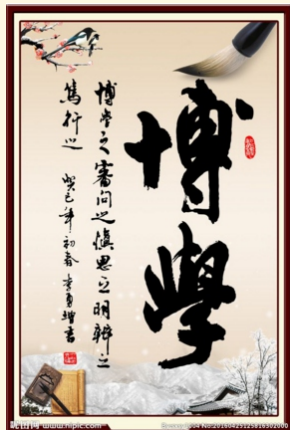 博學
博學之審問之慎思之明辯之
篤行之
癸巳年初春李勇理書
昵图网 www.nipic.com